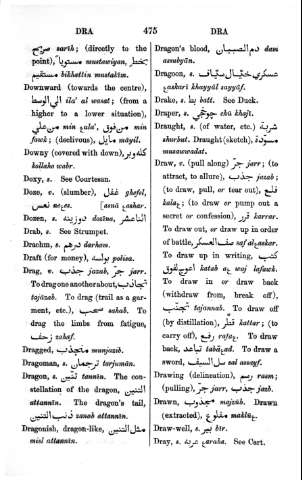 DRA 475 DRA
صريح sarīh; (directly to the
point), مستوياً mustawiyan, بخط
مستقيم bikhattin mustakīm.
Downward (towards the centre),
الي الوسط ila' al wasat; (from a
higher to a lower situation),
من علي min عala', من فوق min
fawk; (declivous), مايل māyil.
Downy (covered with down),
kollaha wabr.
Doxy, s. See Courtesan.
Doze, v. (slumber), غفل ghefel,
نعس neعes. [asnā عashar.
Dozen, s. دوزينه dozīna, اثناعشر
Drab, s. See Strumpet.
Drachm, s. درهم darham.
Draft (for money), بولسه polisa.
Drag, v. جذب jazab, جرّ jarr.
To drag one another about, تجاذب
tajāzab. To drag (trail as a gar-
ment, etc.), سحب sahab. To
drag the limbs from fatigue,
زحف zahaf.
Dragged, منجذب munjazib.
Dragoman, s. ترجمان tarjumān.
Dragon, s. تنين tannīn. The con-
stellation of the dragon, التنين
attannīn. The dragon's tail,
ذنب التنين zanab attannīn.
Dragonish, dragon-like, مثل التنين
misl attannīn.
Dragon's blood, دم الصبيان dam
assubyān.
Dragoon, s. عسكري خيّال سيّاف
عaskarī khayyāl sayyāf.
Drake, s. بط batt. See Duck.
Draper, s. جوخجي chū khajī.
Draught, s. (of water, etc.) شربة
shurbat. Draught (sketch), مسوّدة
musawwadat.
Draw, v. (pull along) جرّ jarr; (to
attract, to allure), جذب jazab;
(to draw, pull, or tear out), قلع
kalaع; (to draw or pump out a
secret or confession), قرّر karrar.
To draw out, or draw up in order
of battle, صفّ العسكر saf al عaskar.
To draw up in writing, كتب
katab
To draw in or draw back
(withdraw from, break off),
تجنّب tajannab. To draw off
(by distillation), قطّر kattar; (to
carry off), رفع rafaع. To draw
back, تباعد tabāعad. To draw a
sword, سل السيف sal assayf.
Drawing (delineation), رسم rasm;
(pulling), جرّ jarr, جذب jazb.
Drawn, مجذوب majzūb. Drawn
(extracted), مقلوع maklūع.
Draw-well, s. بير bīr.
Dray, s. عربة عaraba. See Cart.